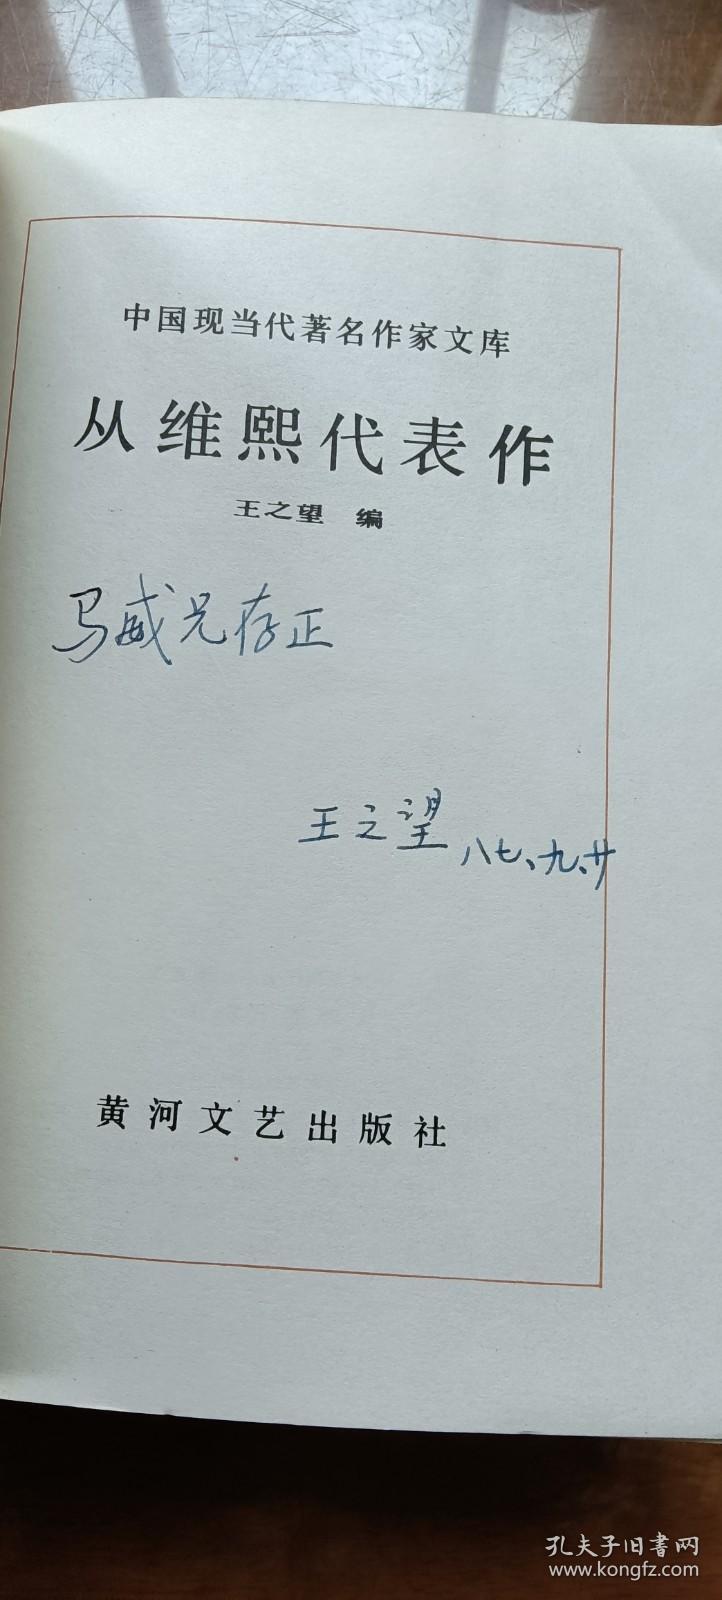 中国现当代著名作家文库
从维熙代表作
王之望 编
马威兄存正
王之望 八七、九、廿
黄河文艺出版社
孔夫子旧書网
www.kongfz.com